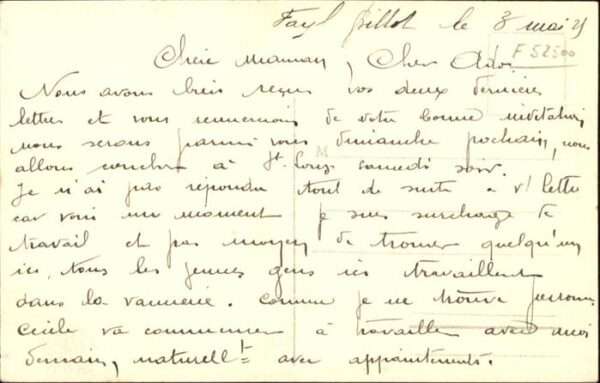 Fayl Billot le 8 mai 21
F 52500
Chère Maman, Cher Ado
Nous avons bien reçu vos deux dernières
lettres et vous remercions de votre bonne invitation,
nous serons parmi vous dimanche prochain, nous
allons coucher à St. Louz samedi soir.
Je n'ai pas répondu tout de suite à v/ lettre
car vois un moment je suis surchargé de
travail et pas moyen de trouver quelqu'un
ici, tous les jeunes gens ici travaillent
dans la vannerie. Comme je ne trouve personne
Cécile va commencer à travailler avec moi
demain, naturellt avec appointements.